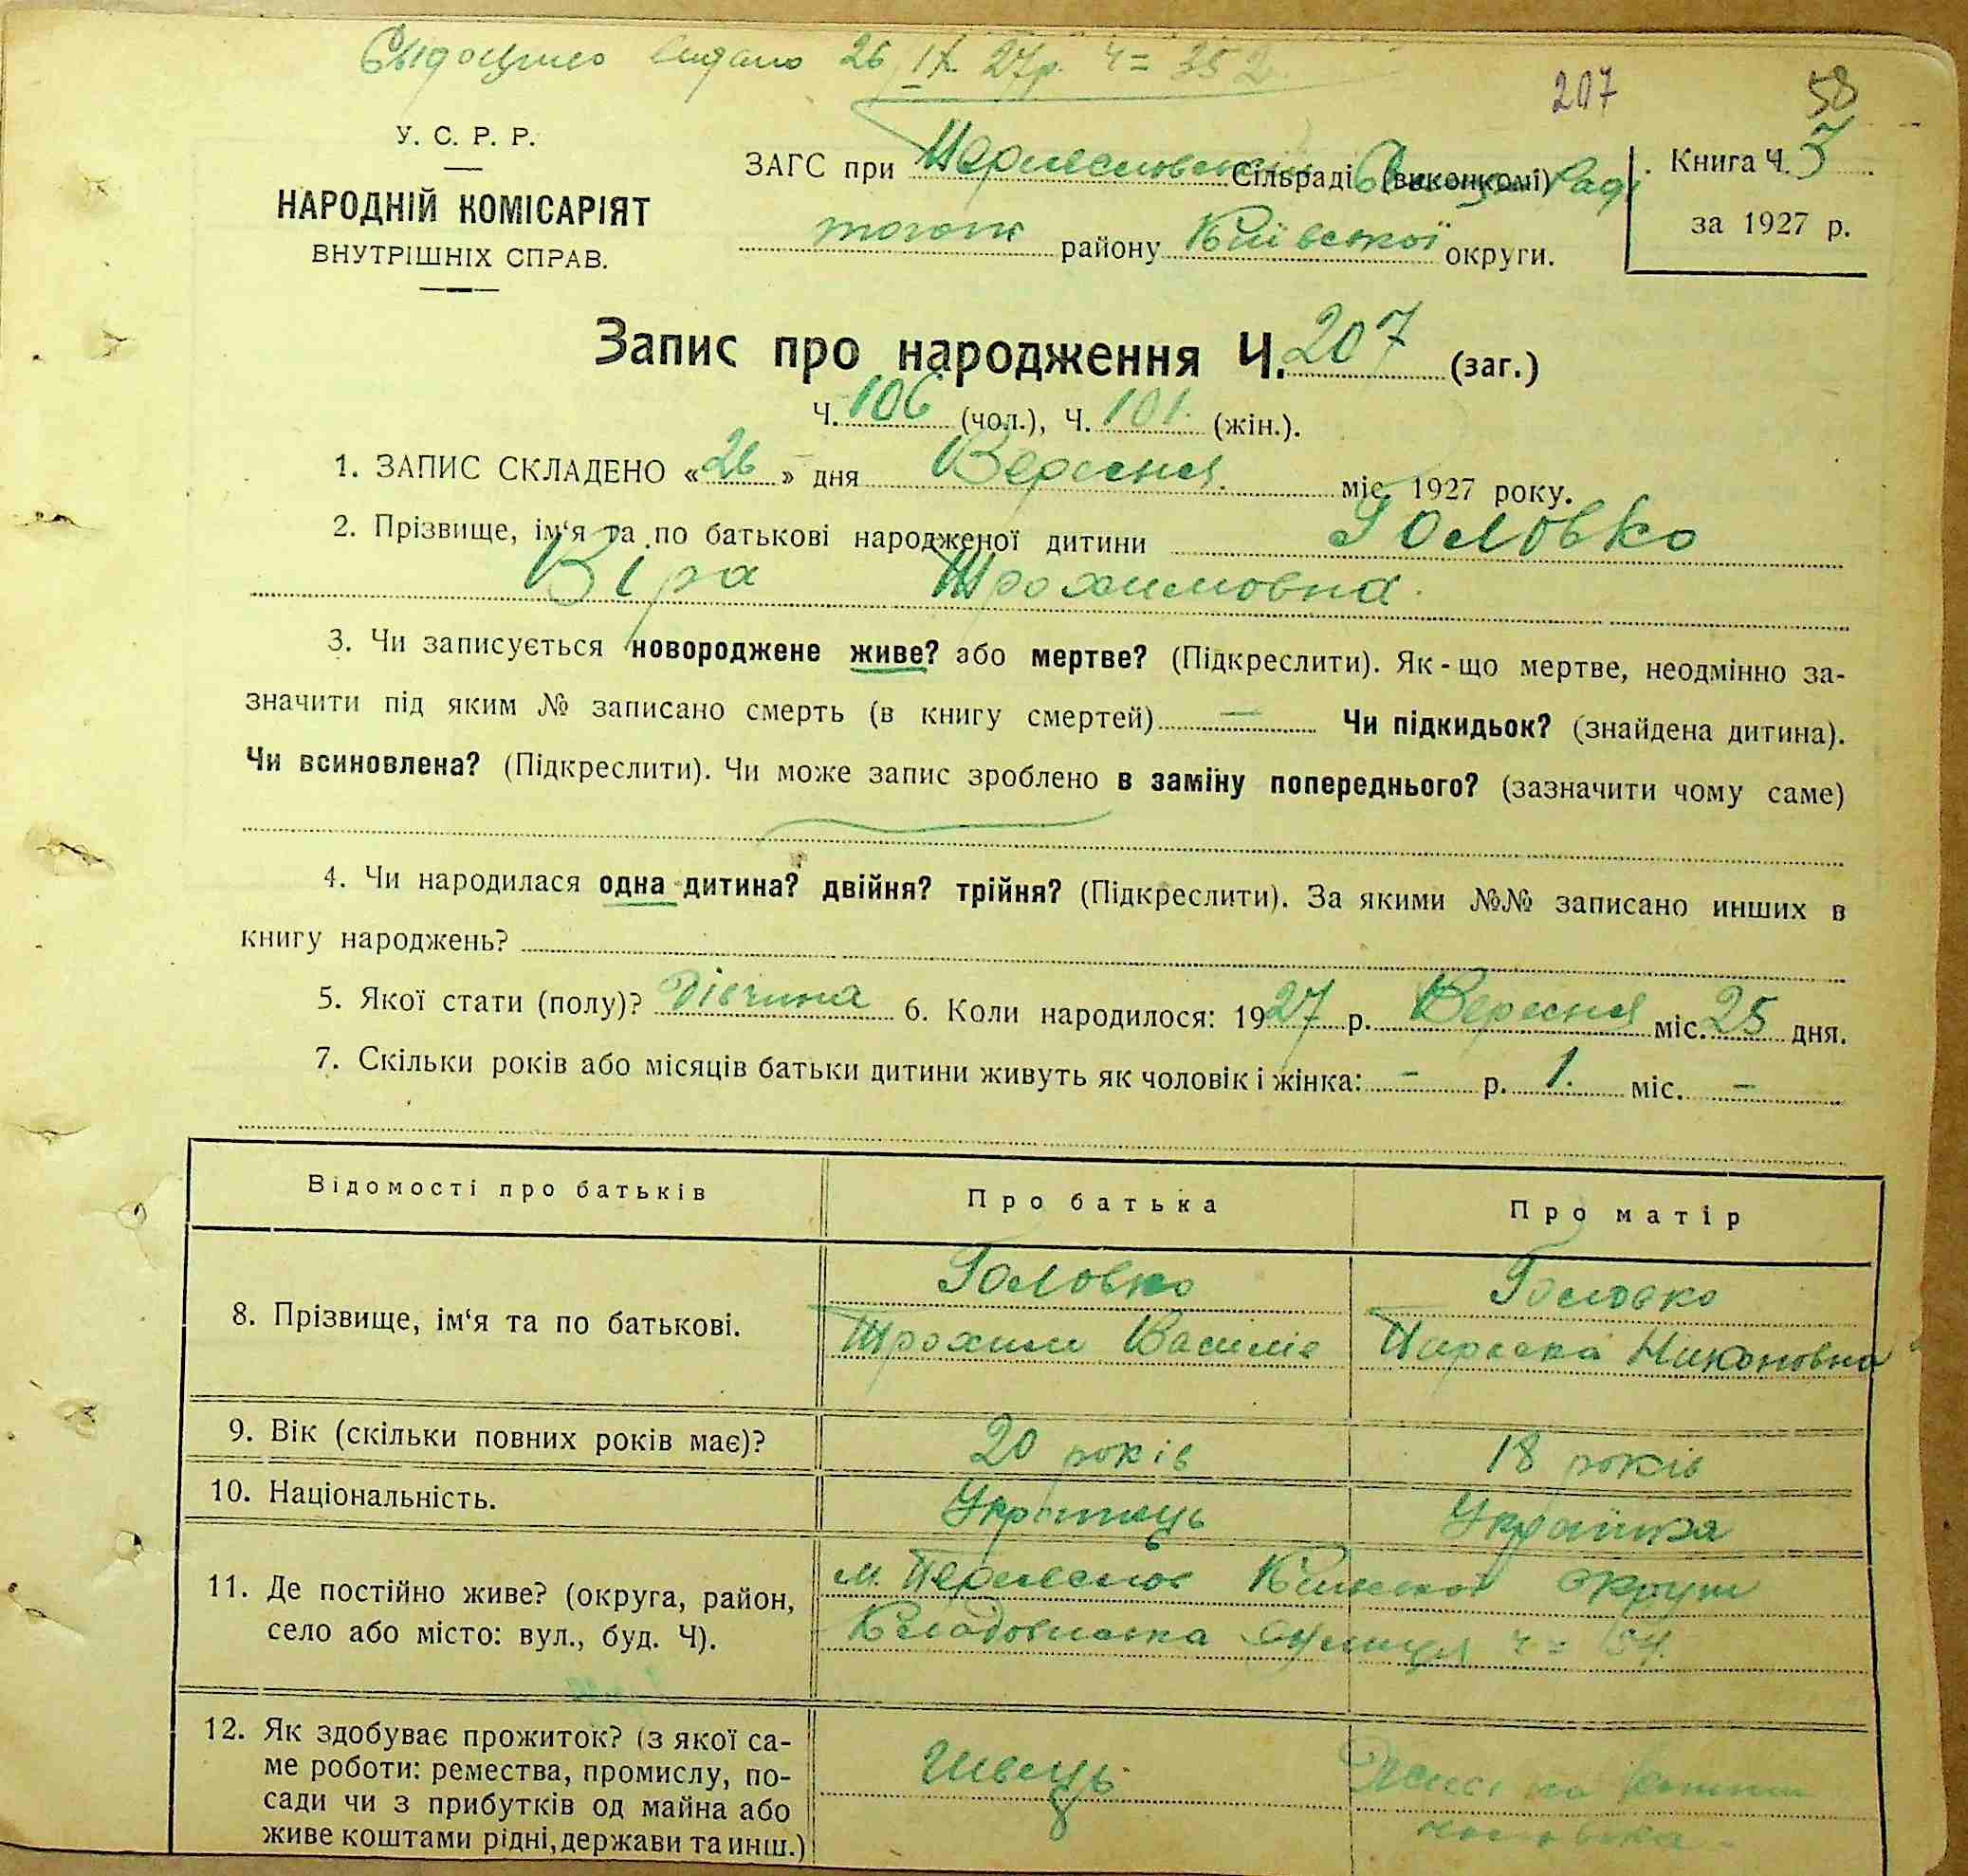 Свідоцтво видано 26 IX 27р. ч = 352
207 58
У. С. Р. Р.
НАРОДНІЙ КОМІСАРІЯТ
ВНУТРІШНІХ СПРАВ.
ЗАГС при Сільраді (виконкомі)
того ж району Київської округи.
Книга Ч. 3
за 1927 р.
Запис про народження Ч. 207 (заг.)
Ч. 106 (чол.), Ч. 101 (жін.).
1. ЗАПИС СКЛАДЕНО «26» дня Вересня міс. 1927 року.
2. Прізвище, ім‘я та по батькові народженої дитини Головко
Віра Трохимовна
3. Чи записується новороджене живе? або мертве? (Підкреслити). Як-що мертве, неодмінно за-
значити під яким № записано смерть (в книгу смертей) — Чи підкидьок? (знайдена дитина).
Чи всиновлена? (Підкреслити). Чи може запис зроблено в заміну попереднього? (зазначити чому саме)
4. Чи народилася одна дитина? двійня? трійня? (Підкреслити). За якими №№ записано инших в
книгу народжень?
5. Якої стати (полу)? Дівчина 6. Коли народилося: 1927 р. Вересня міс. 25 дня.
7. Скільки років або місяців батьки дитини живуть як чоловік і жінка: – р. 1. міс. –
Відомості про батьків Про батька Про матір
8. Прізвище, ім‘я та по батькові.
Головко
Трохим
Головко
Никоновна
9. Вік (скільки повних років має)? 20 років 18 років
10. Національність. Українець Українка
11. Де постійно живе? (округа, район,
село або місто: вул., буд. Ч).
м. округи
ч =
12. Як здобуває прожиток? (з якої са-
ме роботи: ремества, промислу, по-
сади чи з прибутків од майна або
живе коштами рідні, держави та инш.)
Швець